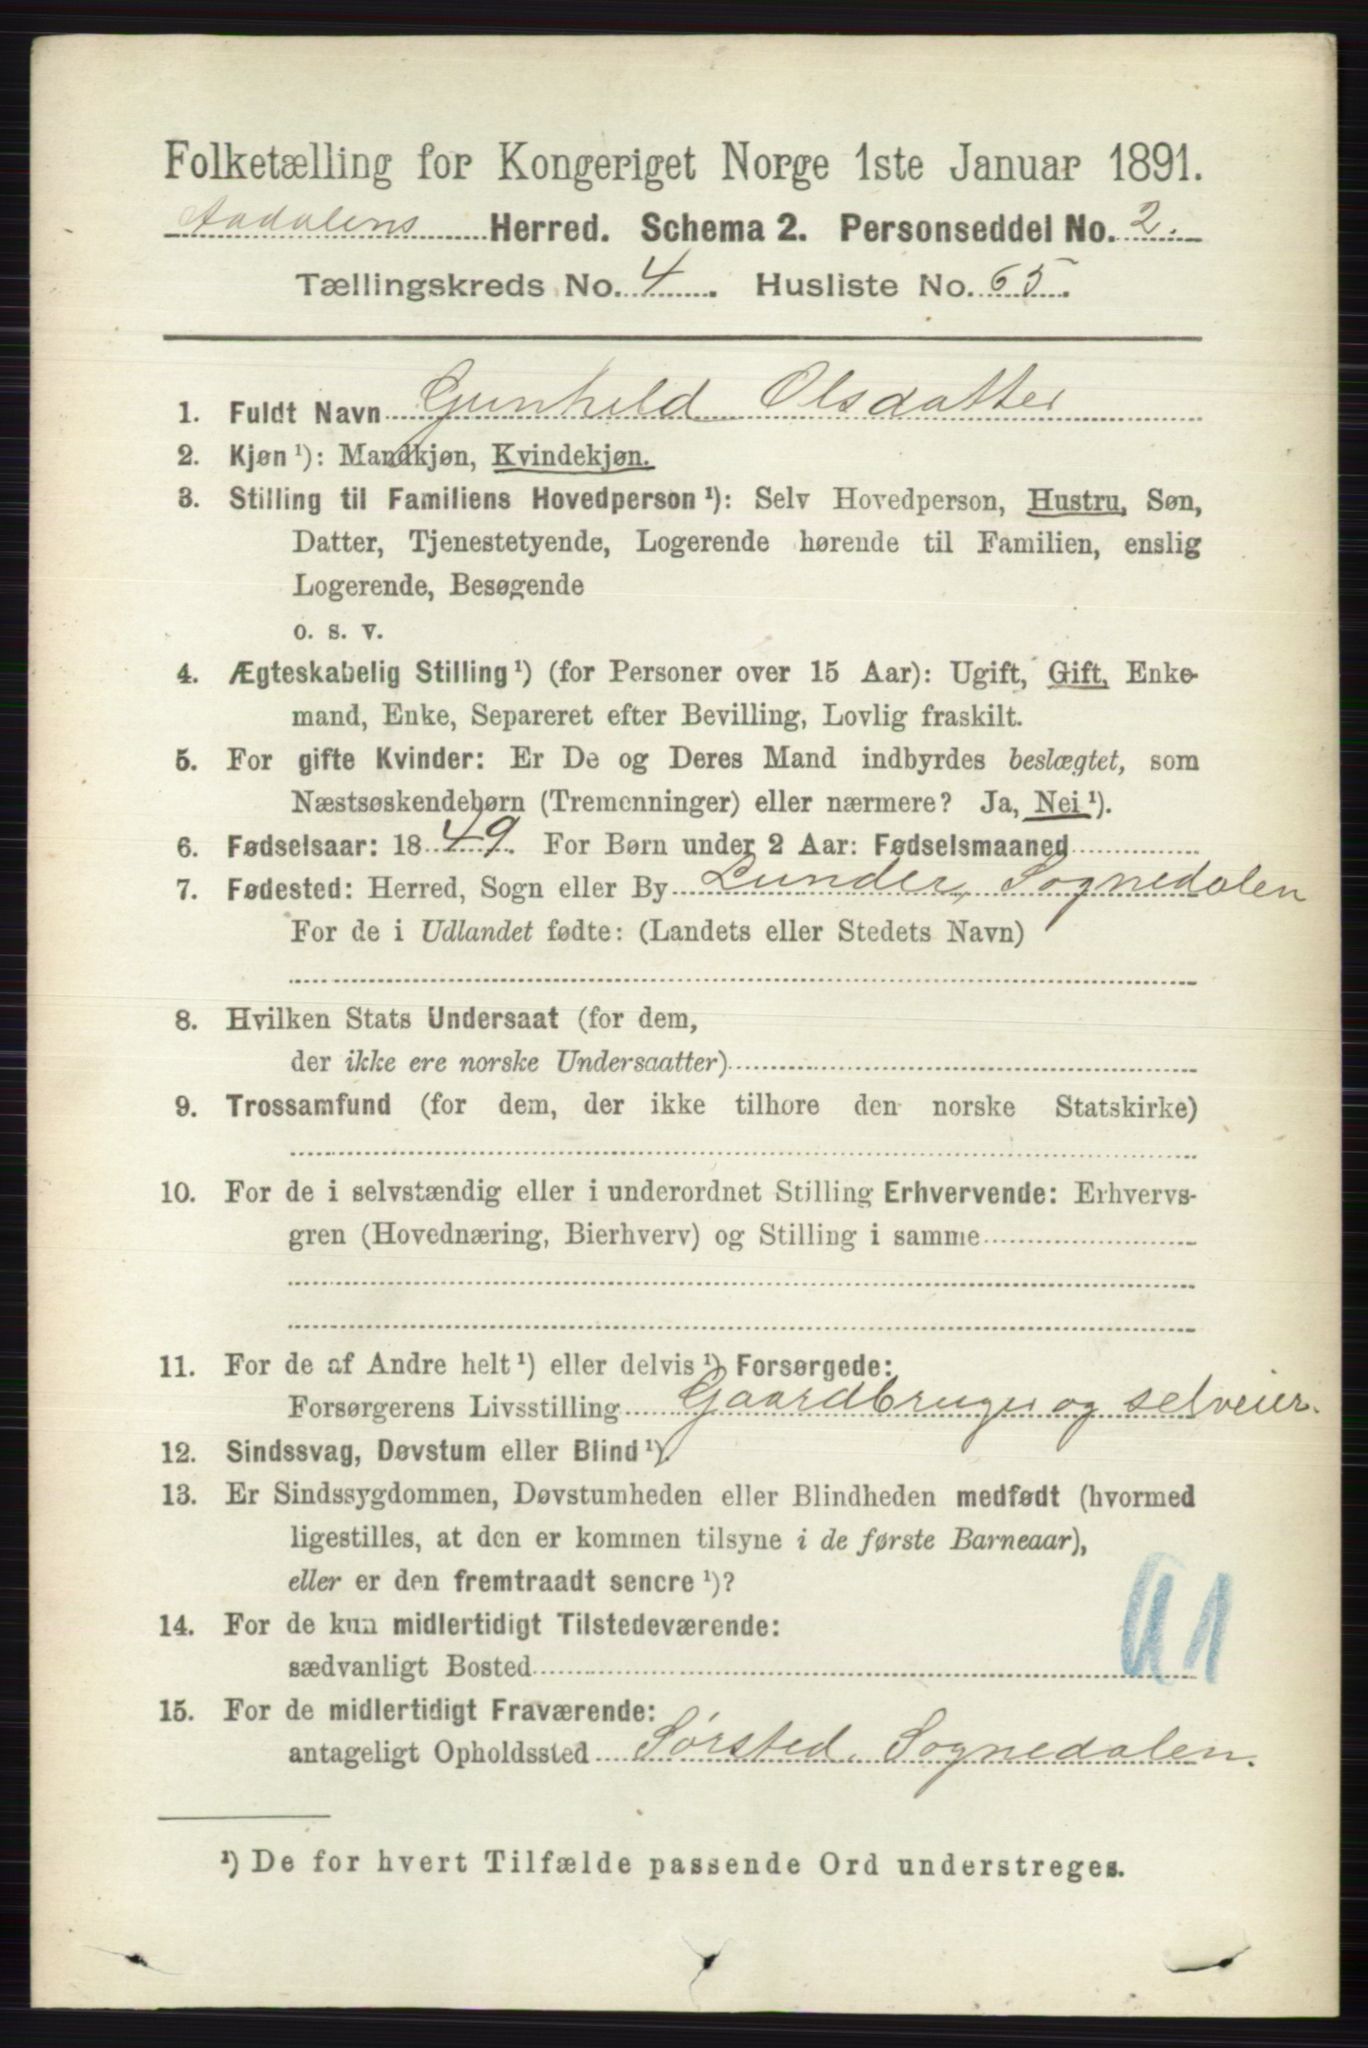 Folketælling for Kongeriget Norge 1ste Januar 1891.
Aadalens Herred. Schema 2. Personseddel No. 2.
Tællingskreds No. 4. Husliste No. 65.
1. Fuldt Navn Gunhild Olsdatter
2. Kjøn ¹): Mandkjøn, Kvindekjøn.
3. Stilling til Familiens Hovedperson ¹): Selv Hovedperson, Hustru, Søn,
Datter, Tjenestetyende, Logerende hørende til Familien, enslig
Logerende, Besøgende
o. s. v.
4. Ægteskabelig Stilling ¹) (for Personer over 15 Aar): Ugift, Gift, Enke-
mand, Enke, Separeret efter Bevilling, Lovlig fraskilt.
5. For gifte Kvinder: Er De og Deres Mand indbyrdes beslægtet, som
Næstsøskendebørn (Tremenninger) eller nærmere? Ja, Nei ¹).
6. Fødselsaar: 1849. For Børn under 2 Aar: Fødselsmaaned
7. Fødested: Herred, Sogn eller By Lunder, Sognedalen
For de i Udlandet fødte: (Landets eller Stedets Navn)
8. Hvilken Stats Undersaat (for dem,
der ikke ere norske Undersaatter)
9. Trossamfund (for dem, der ikke tilhøre den norske Statskirke)
10. For de i selvstændig eller i underordnet Stilling Erhvervende: Erhvervs-
gren (Hovednæring, Bierhverv) og Stilling i samme
11. For de af Andre helt ¹) eller delvis ¹) Forsørgede:
Forsørgerens Livsstilling Gaardbruger og selveier.
12. Sindssvag, Døvstum eller Blind ¹).
13. Er Sindssygdommen, Døvstumheden eller Blindheden medfødt (hvormed
ligestilles, at den er kommen tilsyne i de første Barneaar),
eller er den fremtraadt senere ¹)?
14. For de kun midlertidigt Tilstedeværende:
sædvanligt Bosted
15. For de midlertidigt Fraværende:
antageligt Opholdssted Sørsted, Sognedalen.
¹) De for hvert Tilfælde passende Ord understreges.